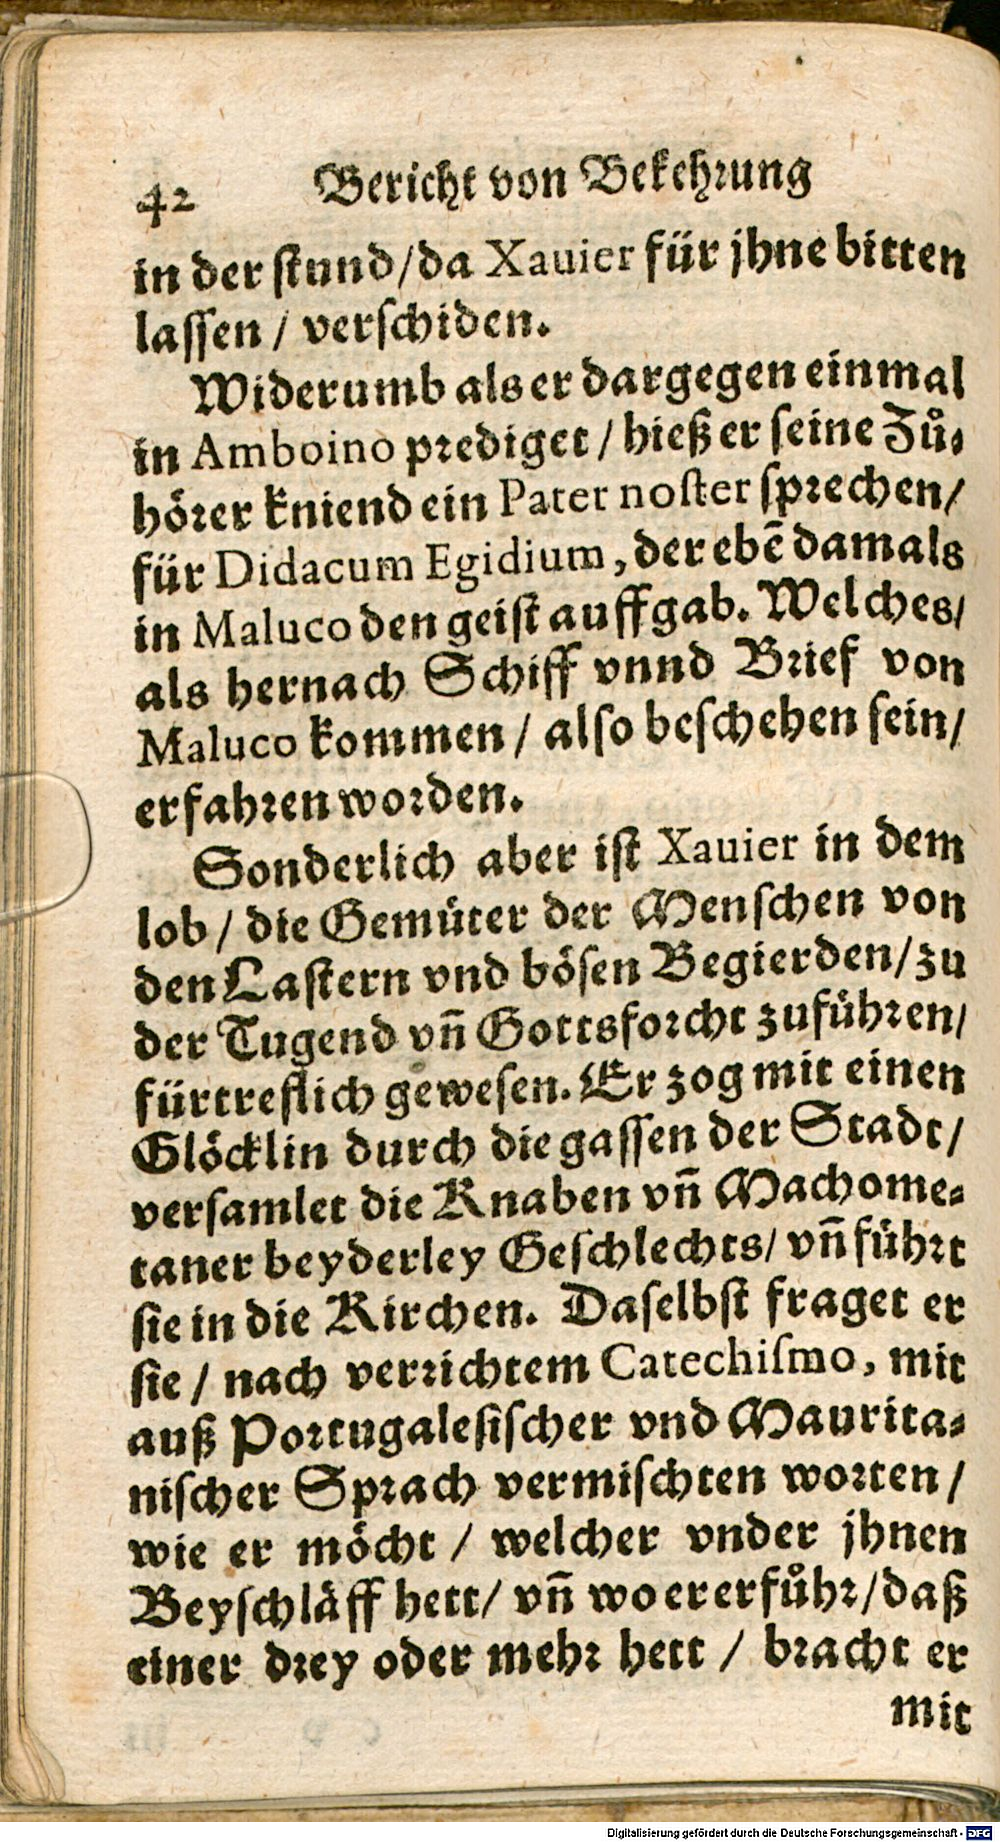 42 Bericht von Bekehrung
in der stund/da Xauier für jhne bitten
lassen / verschiden.
Widerumb als er dargegen einmal
in Amboino prediget / hieß er seine Zů-
hörer kniend ein Pater noster sprechen/
für Didacum Egidium, der ebē damals
in Maluco den geist auffgab. Welches/
als hernach Schiff vnnd Brief von
Maluco kommen / also beschehen sein/
erfahren worden.
Sonderlich aber ist Xauier in dem
lob / die Gemüter der Menschen von
den Lastern vnd bösen Begierden/zu
der Tugend vñ Gottsforcht zuführen/
fürtreflich gewesen. Er zog mit einen
Glöcklin durch die gassen der Stadt/
versamlet die Knaben vñ Machome-
taner beyderley Geschlechts/ vñ führt
sie in die Kirchen. Daselbst fraget er
sie / nach verrichtem Catechismo, mit
auß Portugalesischer vnd Maurita-
nischer Sprach vermischten worten/
wie er möcht / welcher vnder jhnen
Beyschläff hett/ vñ wo er erfůhr/daß
einer drey oder mehr hett / bracht er
mit
Digitalisierung gefördert durch die Deutsche Forschungsgemeinschaft - DFG